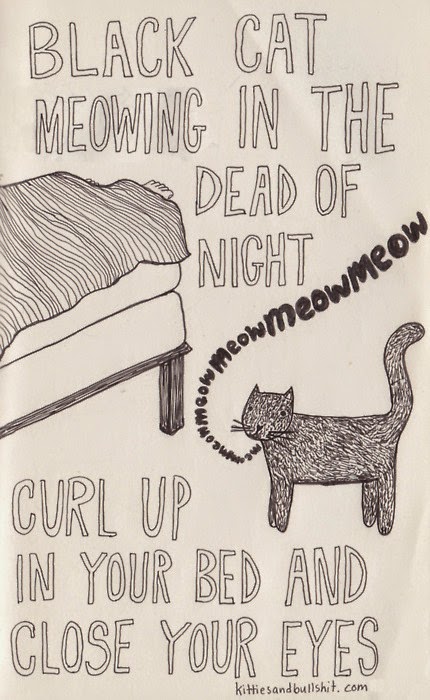 BLACK CAT
MEOWING IN THE
DEAD OF
NIGHT
meowmeowmeowmeowmeowmeow
CURL UP
IN YOUR BED AND
CLOSE YOUR EYES
kittiesandbullshit.com